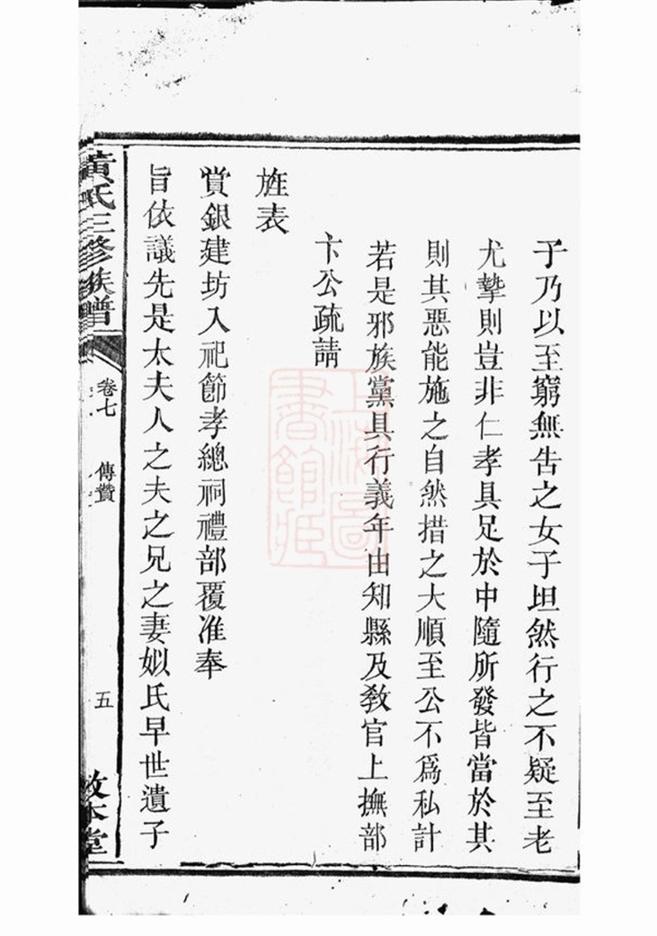 于乃以至窮無告之女子坦然行之不疑至老
尤摯則豈非仁孝具足於中隨所發皆當於其
則其惡能施之自然措之大順至公不爲私計
若是邪族黨具行義年由知縣及教官上撫部
卞公疏請
旌表
賞銀建坊入祀節孝總祠禮部覆准奉
旨依議先是太夫人之夫之兄之妻姒氏早世遺子
黃氏三修族譜
卷七
傳贊
五
敦本堂
上海圖
書館藏